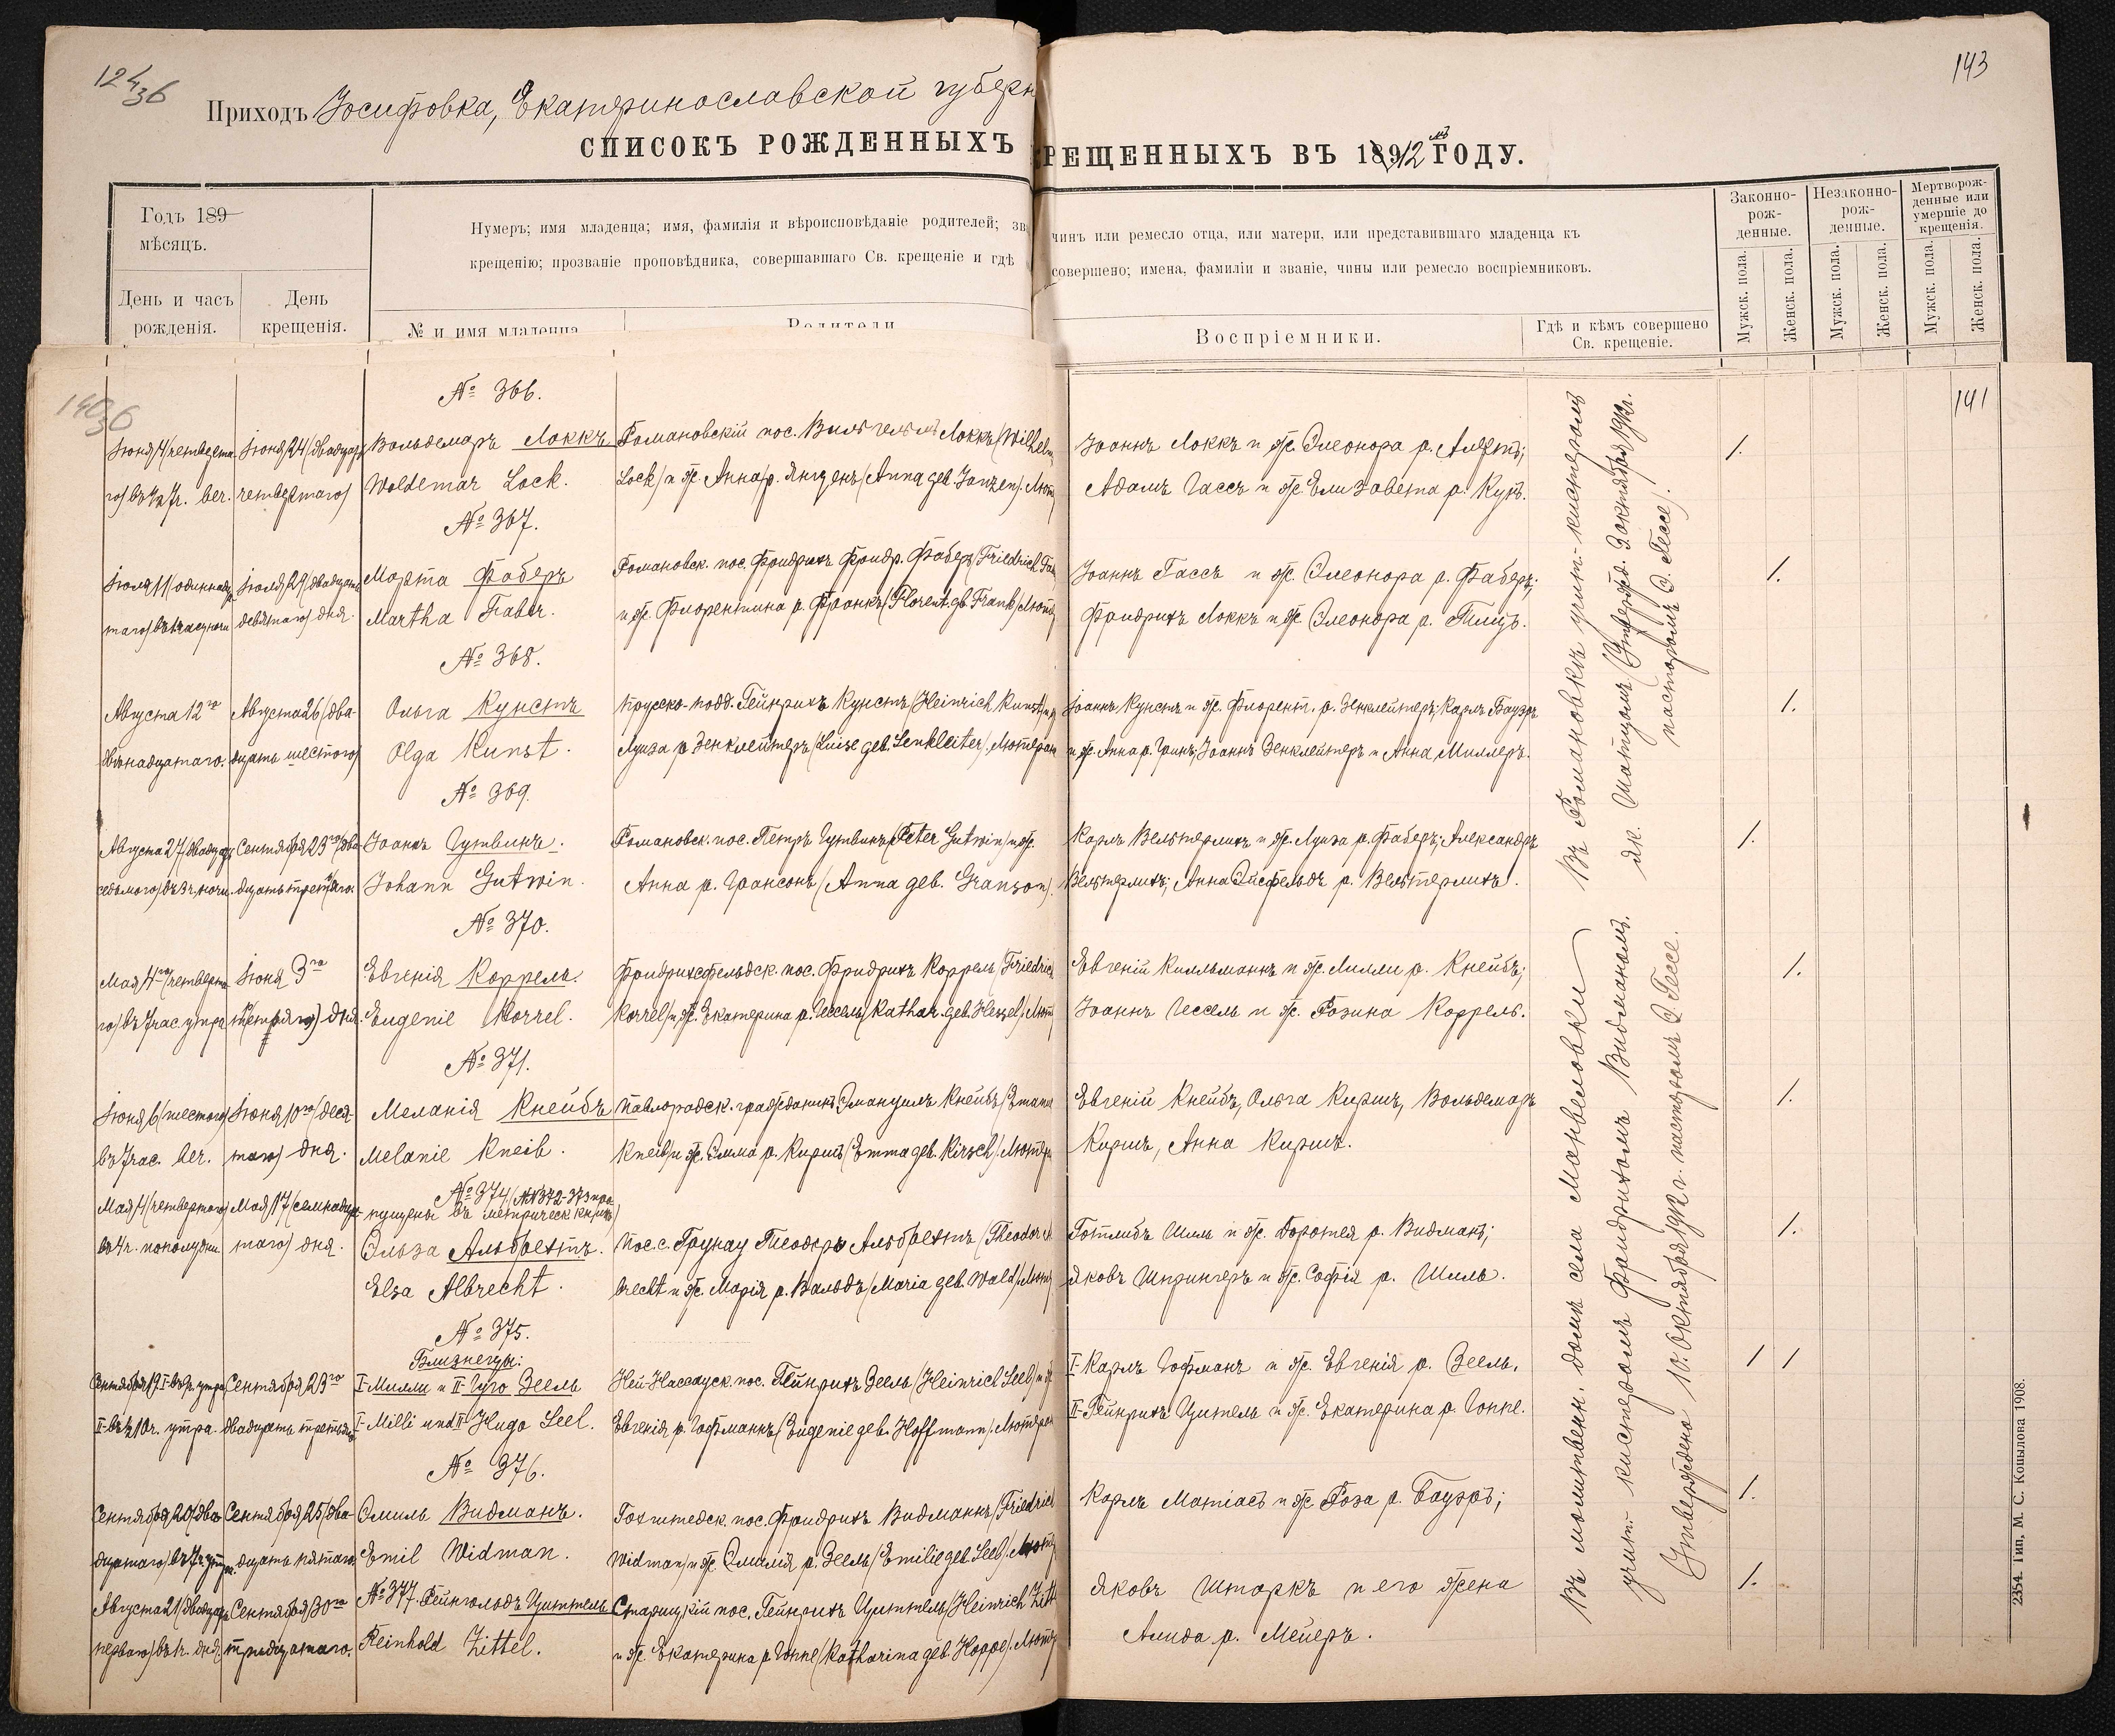 124/36
143
Приходъ Іосифовка, Екатеринославской губерн
СПИСОКЪ РОЖДЕННЫХЪ РЕЩЕННЫХЪ ВЪ 1912 мъ ГОДУ.
Годъ 189
мѣсяцъ.
День и часъ рожденія.
День крещенія.
Нумеръ; имя младенца; имя, фамилія и вѣроисповѣданіе родителей; зв чинъ или ремесло отца, или матери, или представившаго младенца къ
крещенію; прозваніе проповѣдника, совершавшаго Св. крещеніе и гдѣ совершено; имена, фамиліи и званіе, чины или ремесло воспріемниковъ.
№ и имя младенца
Родители
Воспріемники.
Гдѣ и кѣмъ совершено Св. крещеніе.
Законно-рож-денные.
Незаконно-рож-денные.
Мертворож-денные или умершіе до крещенія.
Мужск. пола. Женск. пола. Мужск. пола. Женск. пола. Мужск. пола. Женск. пола.
141
№ 366.
Іюня 4 (четверта- Іюня 24 (двадцать Вольдемаръ Локкъ Романовскій пос. Вильгельмъ Локкъ (Wilhelm Іоаннъ Локкъ и ж. Элеонора р. 1.
го) въ веч. четвертаго) Woldemar Lock. Lock) и ж. Анна р. Янценъ (Anna geb. Janzen). Лют Адамъ Гассъ и ж. Елизавета р. Кунъ.
№ 367.
Іюля 11 (одиннадца- Іюля 29 (двадцать Марта Фаберъ Романовск. пос. Фридрихъ Фридр. Фаберъ (Friedrich Fa Іоаннъ Гассъ и ж. Элеонора р. Фаберъ; 1.
таго) ночи девятаго) дня. Martha Faber. и ж. Флорентина р. Франкъ (Florent. gb. Frank) Лют Фридрихъ Локкъ и ж. Элеонора р. Тилцъ.
№ 368.
Августа 12го Августа 26 (два- Ольга Кунстъ Прусско-подд. Гейнрихъ Кунстъ (Heinrich Kunst) и ж Іоаннъ Кунстъ и ж. Флорент. р. Зенклейтеръ; Карлъ Бауэръ 1.
двѣнадцатаго. дцать шестого) Olga Kunst. Луиза р. Зенклейтеръ (Luise geb. Senkleiter). Лютеран и ж. Анна р. Гринъ; Іоаннъ Зенклейтеръ и Анна Миллеръ.
№ 369.
Августа 27 (двадцать Сентября 23го (два- Іоаннъ Гутвинъ. Романовск. пос. Петръ Гутвинъ (Peter Gutwin) и ж. Карлъ Вельтерлихъ и ж. Луиза р. Фаберъ; Александръ 1.
седьмого) въ 3 ч. ночи. дцать третьяго. Johann Gutwin. Анна р. Грансонъ (Anna geb. Granson). Вельтерлихъ; Анна Эйсфельдъ р. Вельтерлихъ.
№ 370.
Мая 4го (четверта- Іюня 3го Евгенія Коррель. Фридрихсфельдск. пос. Фридрихъ Коррель (Friedric Евгеній Килльманнъ и ж. Лилли р. Кнейбъ; 1.
го) въ 7 час. утра (третьяго) дня. Eugenie Korrel. Korrel) и ж. Екатерина р. Гессель (Kathar. geb. Hessel). Лют Іоаннъ Гессель и ж. Розина Коррель.
№ 371.
Іюня 6 (шестого) Іюня 10го (деся- Меланія Кнейбъ Павлоградск. гражданинъ Эмануилъ Кнейбъ (Emanu Евгеній Кнейбъ, Ольга Киршъ, Вольдемаръ 1.
въ 7 час. веч. таго) дня. Melanie Kneib. Kneib) и ж. Эмма р. Киршъ (Emma geb. Kirsch). Лютер Киршъ, Анна Киршъ.
№ 374. (№№ 372-373 про-
пущены въ метрическ. книгѣ)
Мая 4 (четвертаго) Мая 17 (семнадца- Эльза Альбрехтъ. Пос. с. Грунау Теодоръ Альбрехтъ (Theodor Al Готлибъ Шиль и ж. Доротея р. Видманъ; 1.
въ 4 ч. пополудни. таго) дня. Elsa Albrecht. brecht и ж. Марія р. Вальдъ (Maria geb. Wald). Лют Яковъ Шпрингеръ и ж. Софія р. Шиль.
№ 375.
Близнецы:
Сентября 17 утра Сентября 23го I-Милли и II-Гуго Зеель Ней-Нассауск. пос. Гейнрихъ Зеель (Heinrich Seel) и ж I-Карлъ Гофманъ и ж. Евгенія р. Зеель. 1 1
II- въ 10 ч. утра. двадцать третьяго I-Milli und II-Hugo Seel. Евгенія р. Гофманнъ (Eugenie geb. Hoffmann). Лютеран II-Гейнрихъ Цитель и ж. Екатерина р. Гоппе.
№ 376.
Сентября 20 (два- Сентября 25 (два- Эмиль Видманъ. Гохштедск. пос. Фридрихъ Видманнъ (Friedrich Карлъ Матіасъ и ж. Роза р. Бауэръ; 1.
дцатаго) въ 7 ч. утра. дцать пятаго. Emil Widman. Widman) и ж. Эмилія р. Зеель (Emilie geb. Seel). Лют
Августа 21 (двадцать Сентября 30го № 377. Рейнгольдъ Циттель Старицкій пос. Гейнрихъ Циттель (Heinrich Zitt Яковъ Штаркъ и его жена 1.
перваго) дня. тридцатаго. Reinhold Zittel. и ж. Екатерина р. Гоппе (Katharina geb. Hoppe). Лют Алида р. Мейеръ.
Въ Романовкѣ учит.-кистеромъ
Як. (Утвержд. 3 октября 1912 г.
пасторомъ Э. Гессе).
Въ молитвен. домѣ села Манвеловки
учит.-кистеромъ Фридрихомъ Видманомъ.
(Утверждено 10. Октября 1912 г. пасторомъ Э. Гессе.
2354. Тип. М. С. Копылова 1908.